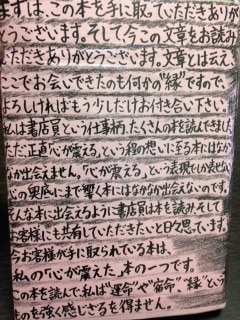 まずは、この本を手に取っていただきありが
とうございます。そして今この文章をお読み
いただきありがとうございます。文章とは云え
こうしてお会いできたのも何かの"縁"ですので、
よろしければもう少しだけお付き合い下さい。
私は書店員という仕事柄、たくさんの本を読んできました。
ただ正直「心が震える」という程の想いに至る本にはなか
なか出会えません。「心が震える」という表現でしか表せない
心の奥底にまで響く本にはなかなか出会えないのです。
そんな本に出会えるように書店員は本を読み、そして
お客様にも共有していただきたいと日々思っています。
今お客様が手に取られている本は、
私の「心が震えた」本の一つです。
この本を読んで、私は"運命"や"宿命"、"縁"という
ものを強く感じざるを得ません。